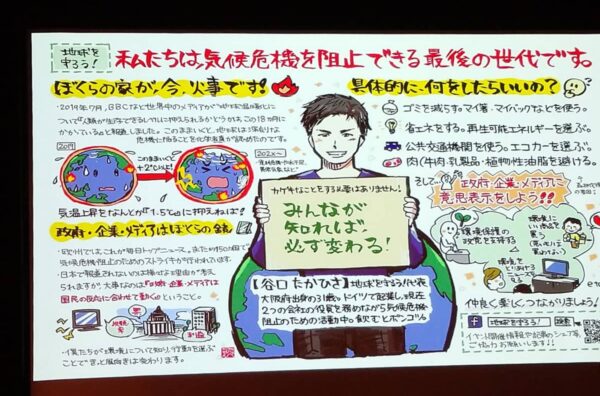 地球を
守ろう!
私たちは、気候危機を阻止できる最後の世代です。
ぼくらの家が、今、火事です!
・2019年7月,BBCなど世界中のメディアで
かかっていると報道しました。このままいくと、地球は
2019
このままいくと
+2℃以上!
202X~
気温上昇をなんとか「1.5℃」に抑えねば!
政府・企業・メディアはぼくらの鏡
・欧州では、これが毎日トップニュース。また
気候危機阻止のためのストライキが行われています。
・日本で報道されないのは様々な理由が考え
られますが、大事なのは「政府・企業・メディアは
国民の反応に合わせて動く」ということ。
・僕たちが環境について知り、行動を選ぶ
ことできっと風向きは変わります。
カゲキなことをする必要はありません!
みんなが
知れば
必ず変わる!
【谷口たかひさ】地球を守ろう!代表
大阪府出身の31歳。ドイツで起業し、現在
2つの会社の役員を務めながら気候危機
阻止のための活動中。飲むとポンコツ。
具体的に、何をしたらいいの?
ゴミを減らす。マイ箸・マイバッグなどを使う。
省エネをする。再生可能エネルギーを選ぶ。
公共交通機関を使う。エコカーを選ぶ。
肉(牛肉・乳製品・植物性油脂を避ける。
そして…
政府・企業・メディアに
意思表示をしよう!!
環境保護の
政党を支持する
環境に
いい商品を
買う
環境を
ニュースを
見る
仲良く楽しく、つながりましょう!
地球を守ろう!
検索
イベント開催情報や記事のシェア等、
ご協力お願いします!!